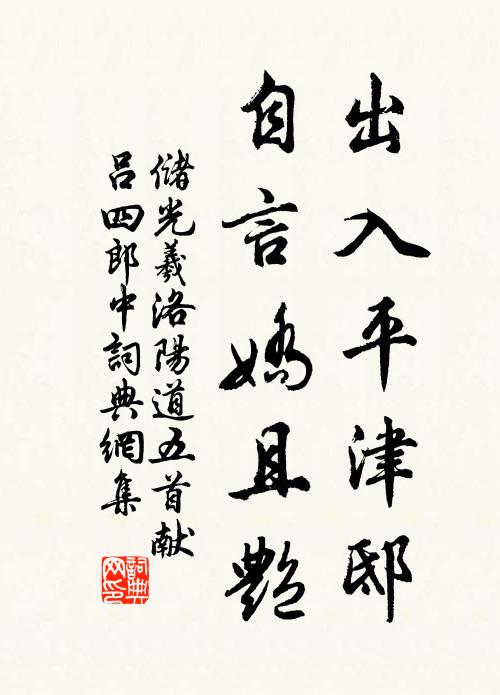 出入平津邸
自言嬌且艷
儲光羲洛陽道五首献
呂四郎中詞典網集
詞典
网印